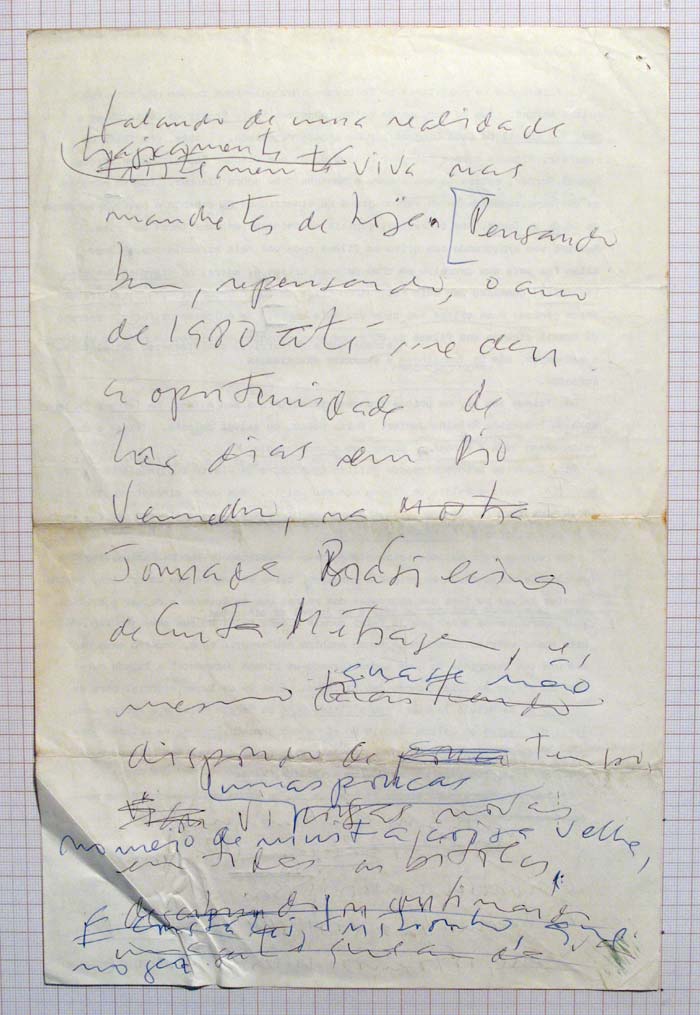 falando de uma realidade
tragicamente
tristemente viva nas
manchetes de hoje. [Pensando
bem, repensando, o ano
de 1980 até me deu
a oportunidade de
três dias em Rio
Vermelho, na Mostra
Jornada Brasileira
de Curta-Metragem, e,
quase não
mesmo
dispondo de tempo,
umas poucas
vi coisas novas
no meio de muita coisa velha,
em todas as bitolas,
E constatei,